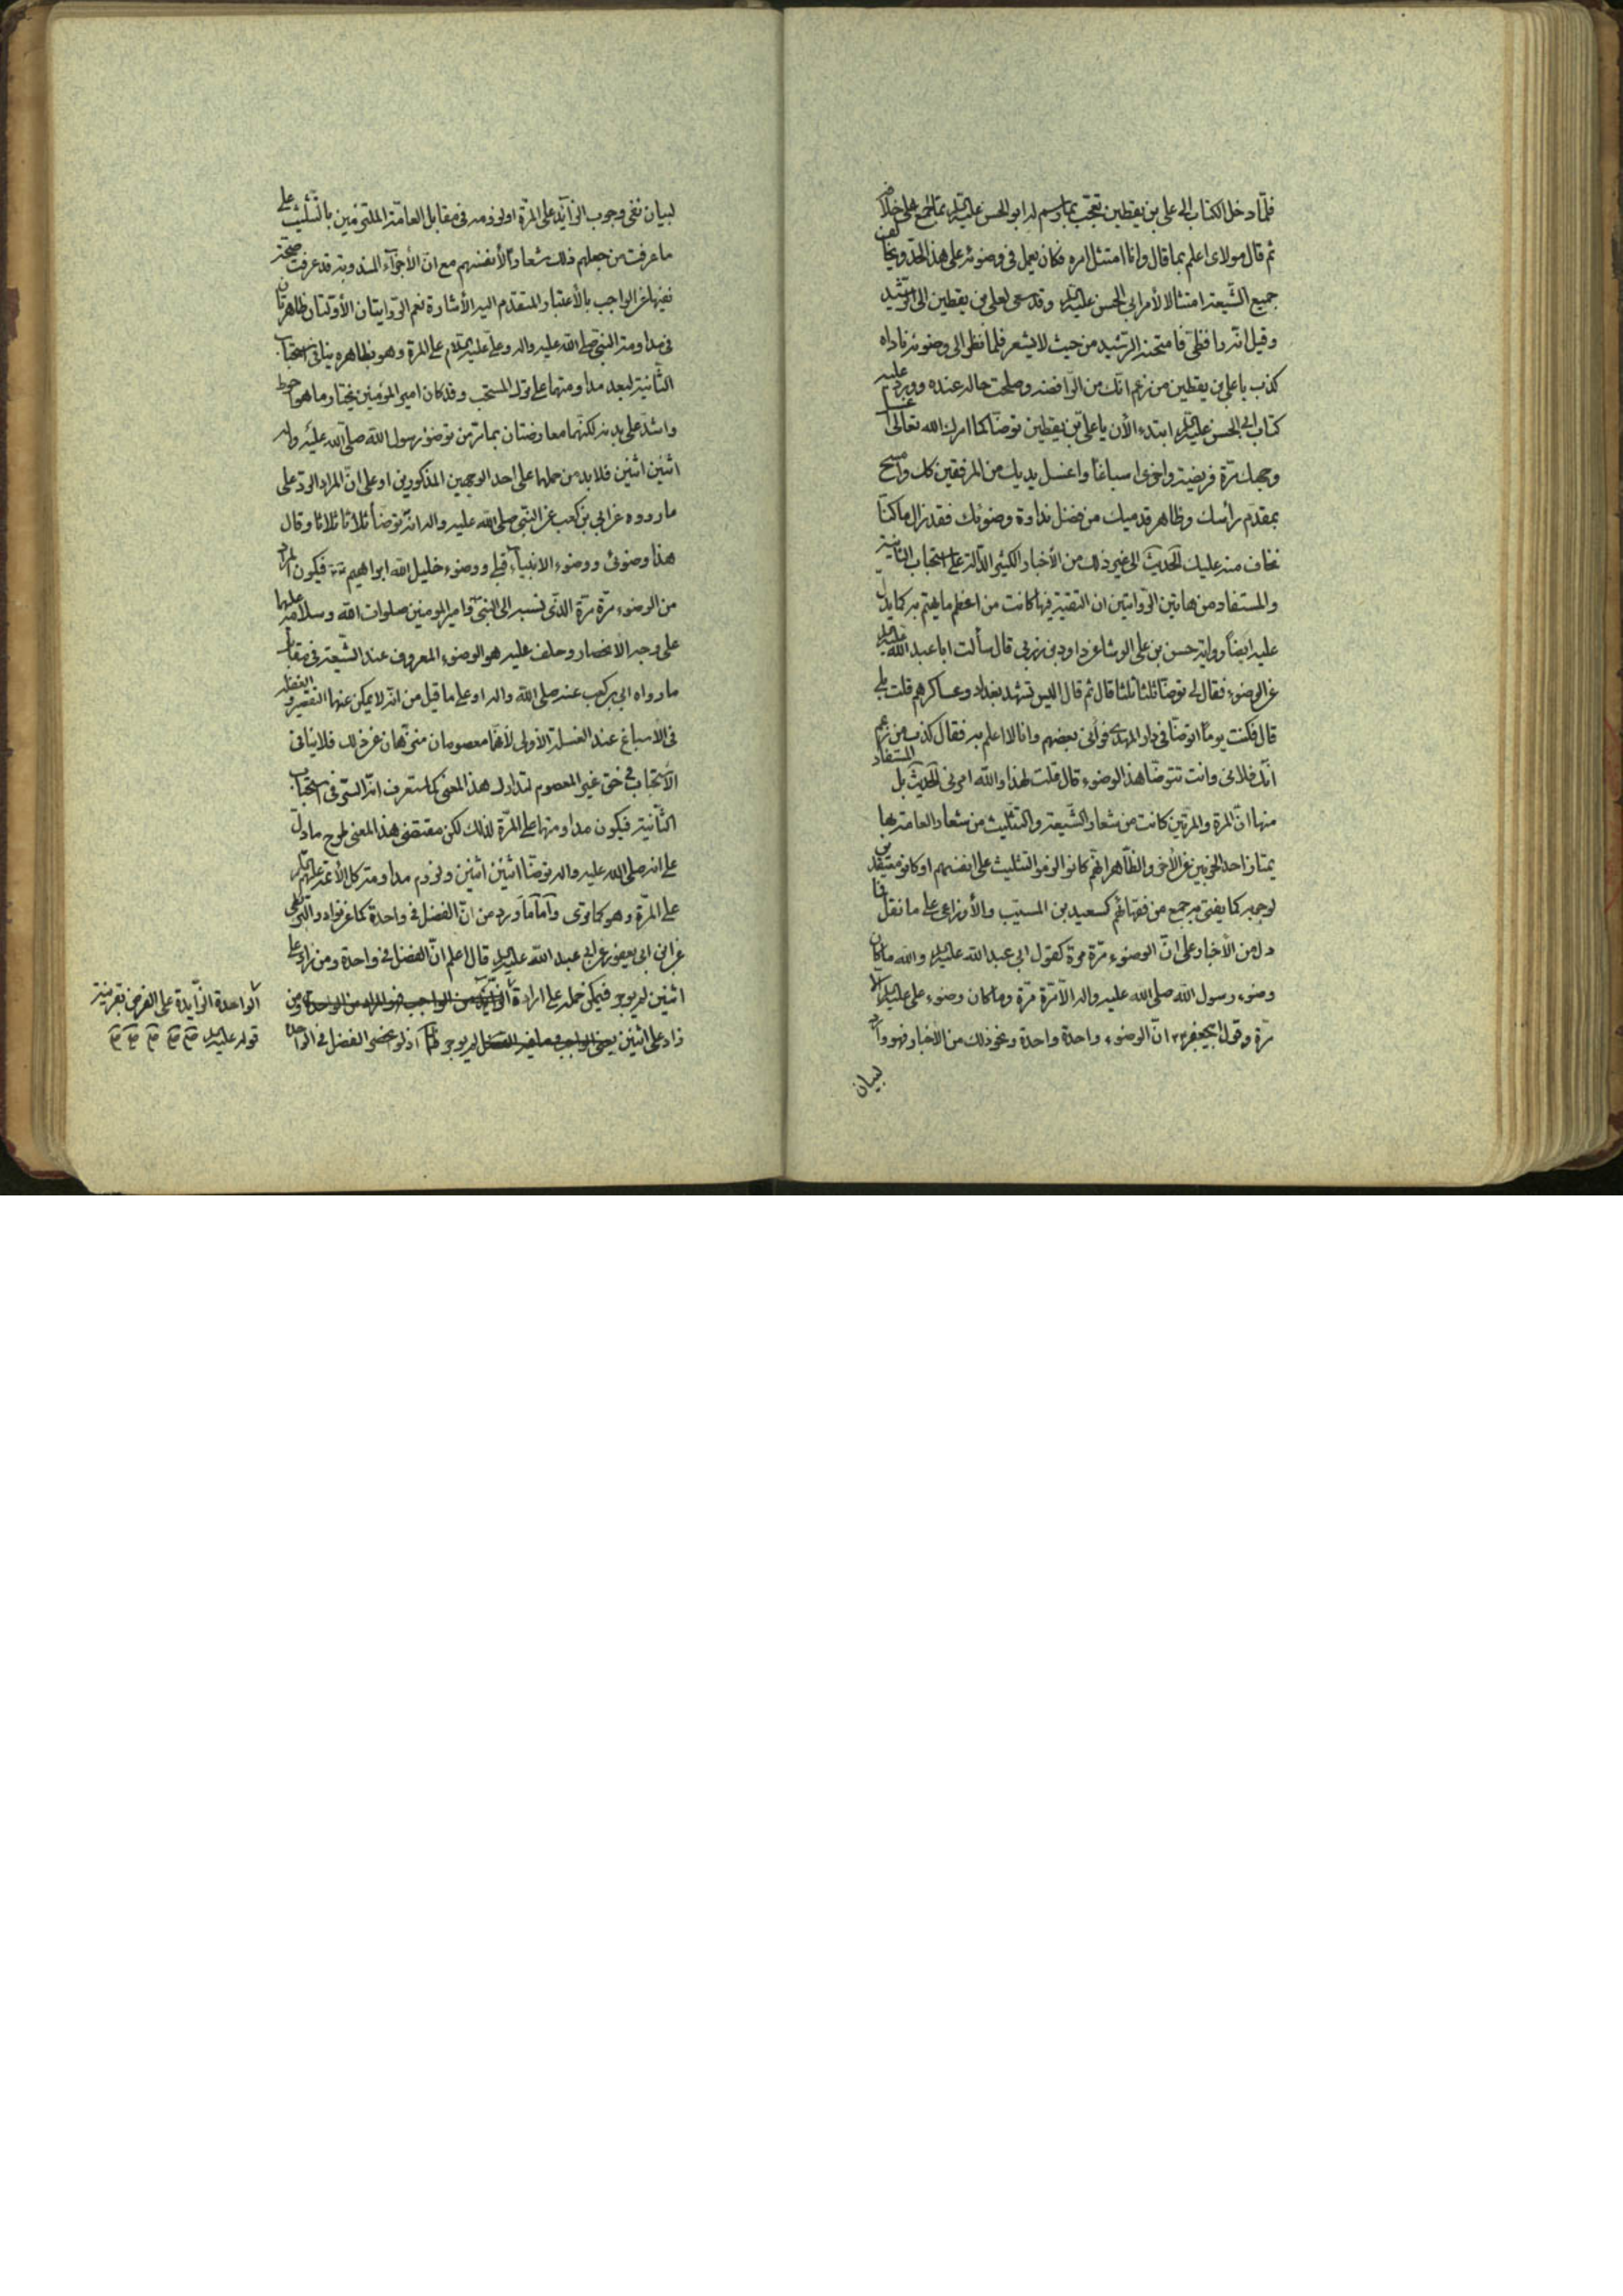 فلمّا دخل الكتاب الى على بن يقطين تعجّب بما رسم له ابو الحسن عليه السلم بما اجمع على خلافه
ثم قال مولاى اعلم بما قال وانا امتثل امره فكان يعمل فى وضوئه على هذا الحدّ ويخالف
جميع الشّيعة امتثالا لأمر ابى الحسن عليه السلم وقد سعى لعلى بن يقطين الى الرشيد
وقيل انه رافضىّ فامتحنه الرشيد من حيث لا يشعر فلما نظر الى وضوئه ناداه
كذب يا على بن يقطين من زعم انّك من الرّافضه وصلحت حاله عنده وورد عليه
كتاب ابى الحسن عليه السلم ابتدء الأن يا على بن يقطين توضّأ كما امرك الله تعالى اغسل
وجهك مرّة فريضة واخرى اسباغا واغسل يديك من المرفقين كك وامسح
بمقدّم رأسك وظاهر قدميك من فضل نداوة وضوئك فقد زال ما كنّا
نخاف منه عليك الحديث الى غير ذلك من الأخبار الكثيرة الدّالة على استحباب الثانية
والمستفاد من هاتين الرّوايتين ان التقيّة فيها كانت من اعظم ما يهتم به كما يدل
عليه ايضاً رواية حسن بن على الوشا عن داود بن زربى قال سألت ابا عبد الله عليه السلم
عن الوضوء فقال لى توضّأ ثلثا ثلثا قال ثم قال اليس تشهد بغداد وعساكرهم قلت بلى
قال فكنت يومًا اتوضّأ فى دار المهدى فرأنى بعضهم وانا لا اعلم به فقال كذب من زعم
انّك فلانى وانت تتوضّأ هذا الوضوء قال قلت لهذا والله امرنى الحديث بل المستفاد
منها انّ المرة والمرتين كانت من شعار الشّيعة والتثليث من شعار العامة بها
يمتاز احد الحزبين عن الأخر والظّاهر انّهم كانوا الزموا التثليث على انفسهم او كانوا معتقدين
لوجوبه كما يفتى به جمع من فقهائهم كسعيد بن المسيّب والأوزاعى على ما نقل فما
دل من الأخبار على انّ الوضوء مرّة مرة كقول ابى عبد الله عليه السلم والله ما كان
وضوء رسول الله صلى الله عليه واله الاّ مرّة مرّة وما كان وضوء على عليه السلم الاّ
مرّة وقول ابى جعفر ع انّ الوضوء واحدة واحدة ونحو ذلك من الأخبار فهو وارد
لبيان
لبيان نفى وجوب الزّائد على المرّة او لزومه فى مقابل العامّة الملتزمين بالتّثليث على
ما عرفت من جعلهم ذلك شعارًا لأنفسهم مع انّ الأجزاء المندوبة قد عرفت صحّة
نفيها عن الواجب بالأعتبار المتقدّم اليه الأشارة نعم الرّوايتان الأوّلتان ظاهرتان
فى مداومة النبى صلى الله عليه واله وعلى عليه السلم على المرة وهو بظاهره ينافى استحباب
الثّانية لبعد مداومتهما على ترك المستحب وقد كان امير المؤمنين يختار ما هو احوط
واشدّ على بدنه لكنّهما معارضتان بما مرّ من توضؤ رسول الله صلى الله عليه واله
اثنين اثنين فلا بد من حملها على احد الوجهين المذكورين او على انّ المراد الردّ على
ما رووه عن ابى بن كعب عن النبى صلى الله عليه واله انّه توضّأ ثلاثا ثلاثا وقال
هذا وضوئى ووضوء الانبياء قبلى ووضوء خليل الله ابراهيم فيكون المراد
من الوضوء مرّة مرّة الذى نسبه الى النبى ص وامير المومنين صلوات الله وسلامه عليهما
على وجه الانحصار وحلف عليه هو الوضوء المعروف عند الشّيعة فى مقابل
ما رواه ابى بن كعب عنه صلى الله واله او على ما قيل من انّه لا يمكن عنهما التقصير والغفلة
فى الأسباغ عند الغسلة الأولى لأنّهما معصومان منزّهان عن ذلك فلا ينافى
الأستحباب فى حق غير المعصوم لتدارك هذا المعنى كما ستعرف انّه السّر فى استحباب
الثّانية فيكون مداومتهما على المرّة لذلك لكن مقتضى هذا المعنى طرح ما دلّ
على انه صلى الله عليه واله توضّأ اثنين اثنين ولزوم مداومة كل الأئمة عليهم السلم
على المرّة وهو كما ترى وامّا ما ورد من انّ الفضل فى واحدة كما عن نوادر البزنطى
عن ابن ابى يعفور عن ابى عبد الله عليه السلم قال اعلم انّ الفضل فى واحدة ومن زاد على
اثنين لم يوجر فيمكن حمله على ارادة ومن
زاد على اثنين لم يوجر اذ لو الفضل فى الواحدة
الواحدة الزّايدة على الفرض بقرينة
قوله عليه السلم صح صح صح صح صح